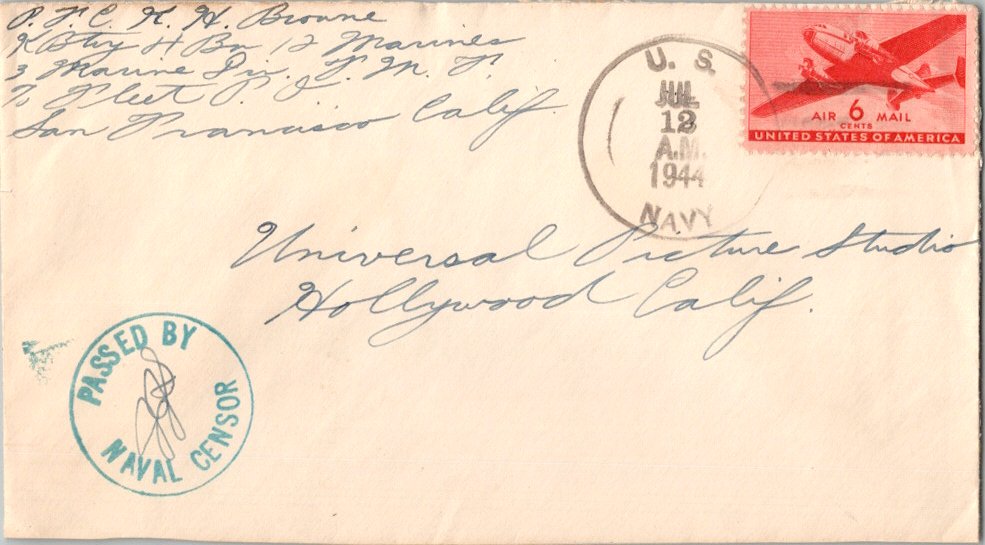 P. F. C. K. H. Browne
K Btry 4 Bn 12 Marines
3 Marine Div. F. M. F.
% Fleet P. O.
San Francisco Calif.
U. S.
JUL
12
A.M.
1944
NAVY
AIR 6 MAIL
CENTS
UNITED STATES OF AMERICA
Universal Picture Studio
Hollywood Calif.
PASSED BY
NAVAL CENSOR